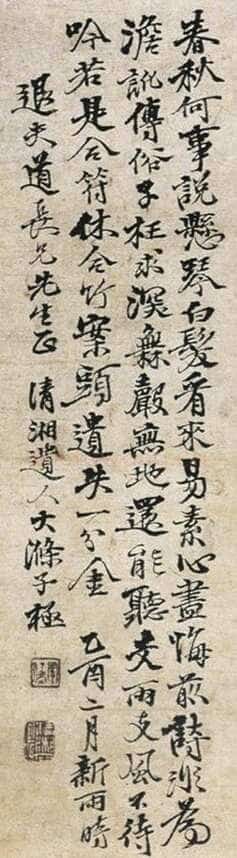 春秋何事說懸琴白髮看來易素心盡悔前詩為
澹訛傳俗子枉求深無聲無地還能聽支雨支風不待
吟若是合符休合竹案頭遺失一分金 乙酉二月新雨時
退夫道長兄先生正 清湘遺人大滌子極